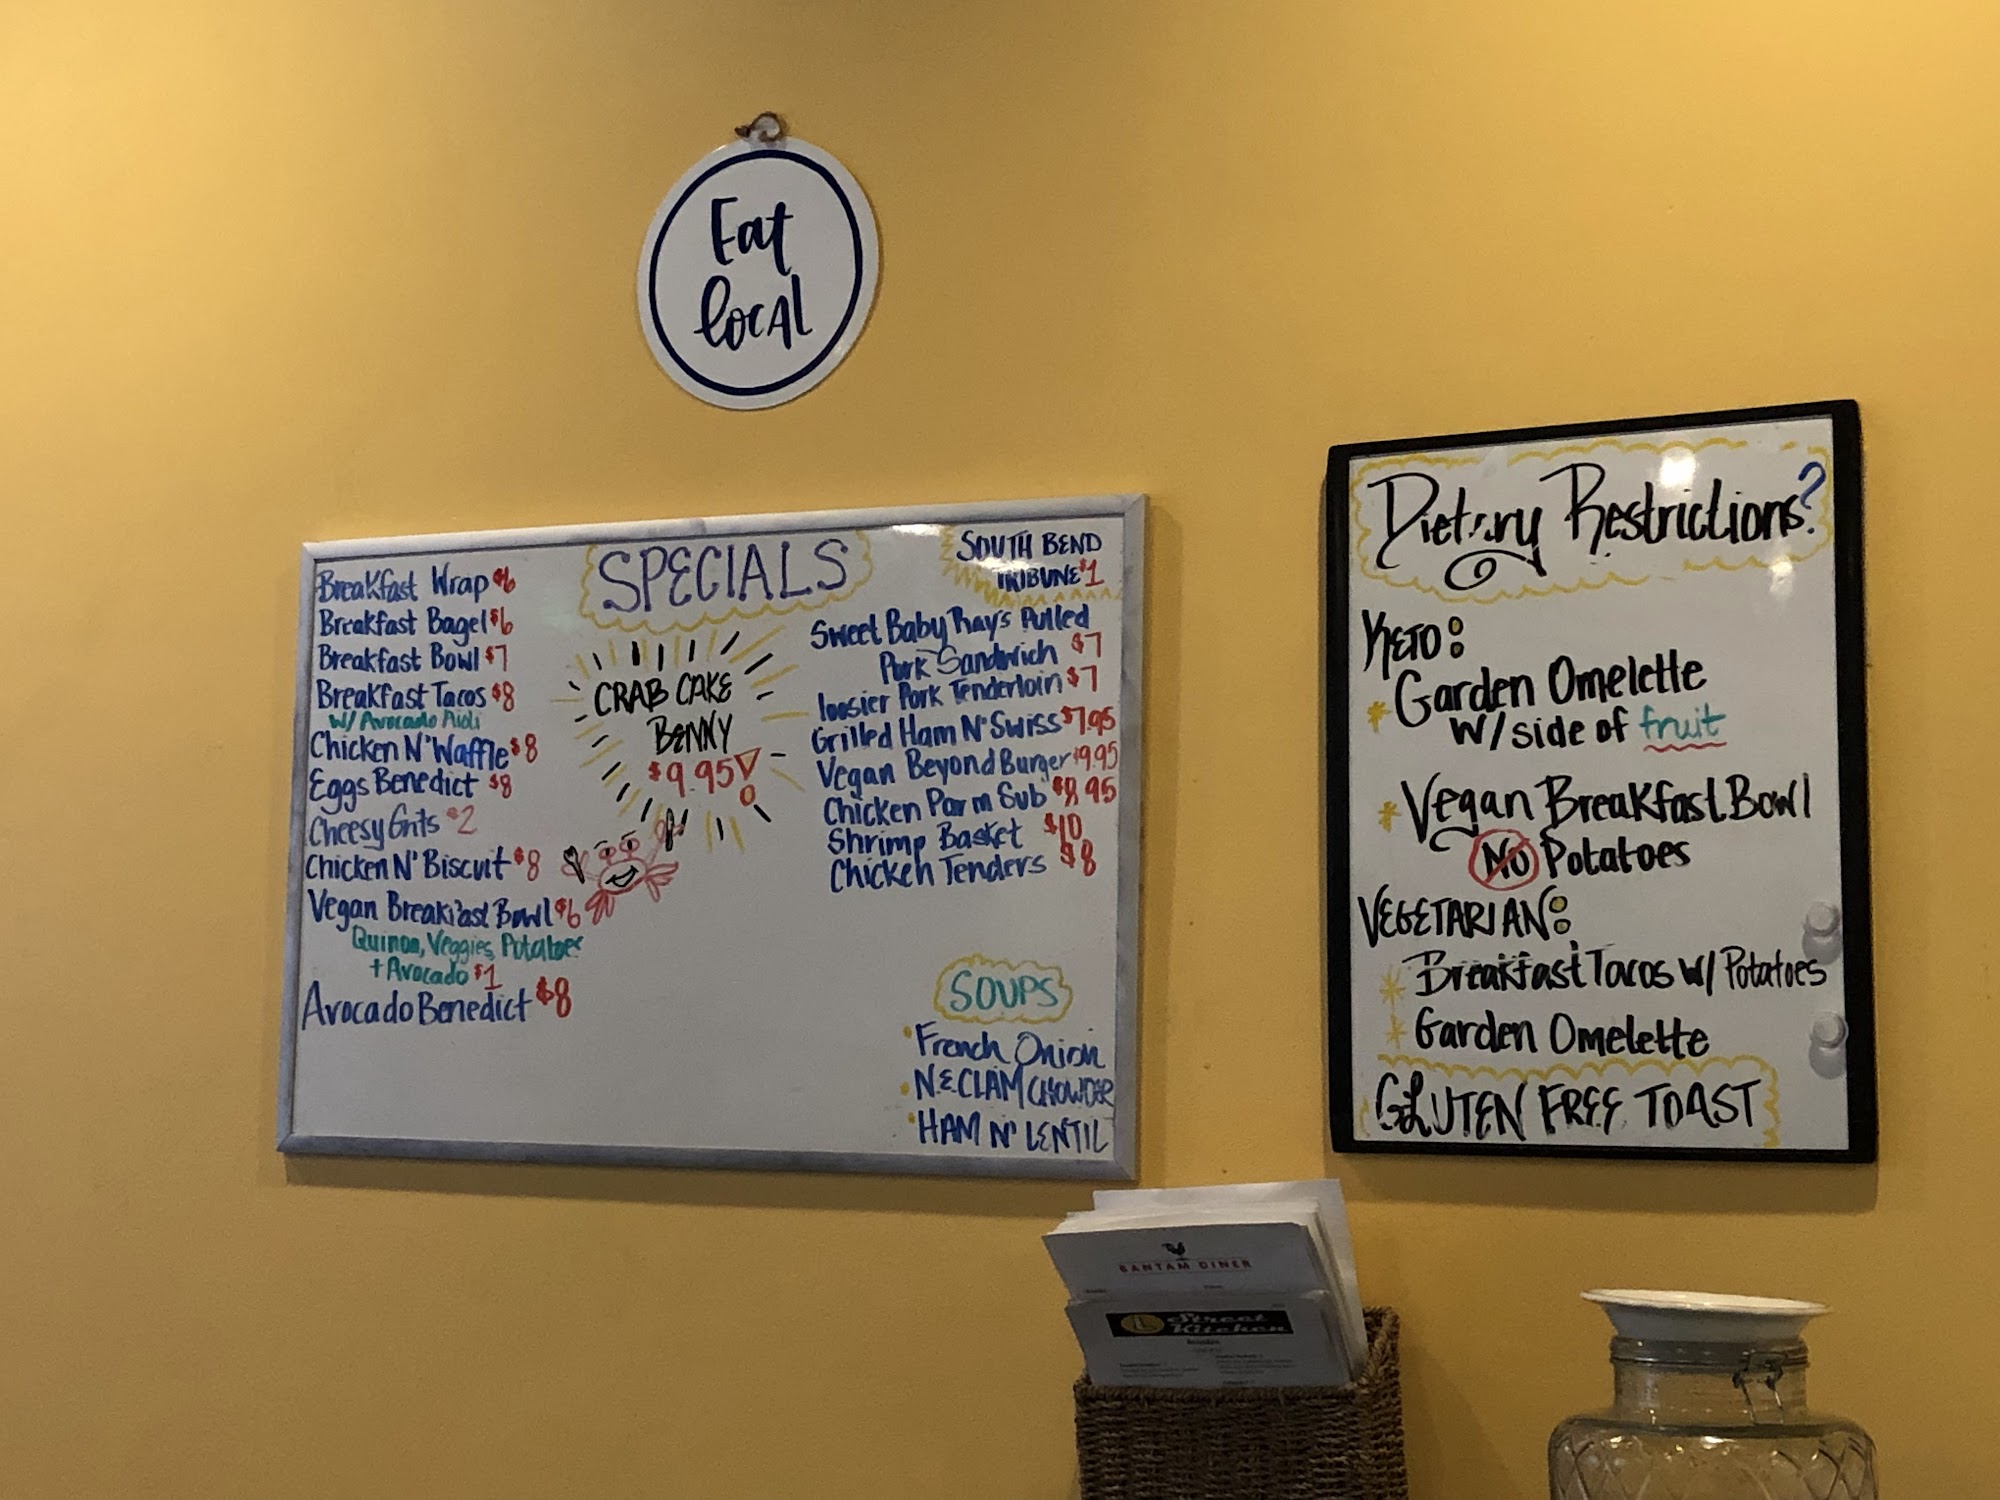 Eat
local
SPECIALS
Breakfast Wrap $6
Breakfast Bagel $6
Breakfast Bowl $7
Breakfast Tacos $8
W/ Avocado Aioli
Chicken N' Waffle $8
Eggs Benedict $8
Cheesy Grits $2
Chicken N' Biscuit $8
Vegan Breakfast Bowl $6
Quinoa, Veggies, Potatoes
+ Avocado $1
Avocado Benedict $8
CRAB CAKE
BENNY
$9.95!
SOUTH BEND
TRIBUNE $1
Sweet Baby Ray's Pulled
Pork Sandwich $7
loosier Pork Tenderloin $7
Grilled Ham N' Swiss $7.95
Vegan Beyond Burger $9.95
Chicken Parm Sub $8.95
Shrimp Basket $10
Chicken Tenders $8
SOUPS
French Onion
N.E CLAM CHOWDER
HAM N' LENTIL
Dietary Restrictions?
KETO:
Garden Omelette
W/ side of fruit
Vegan Breakfast Bowl
NO Potatoes
VEGETARIAN:
Breakfast Tacos W/ Potatoes
Garden Omelette
GLUTEN FREE TOAST
BANTAM DINER
L Street
Kitchen